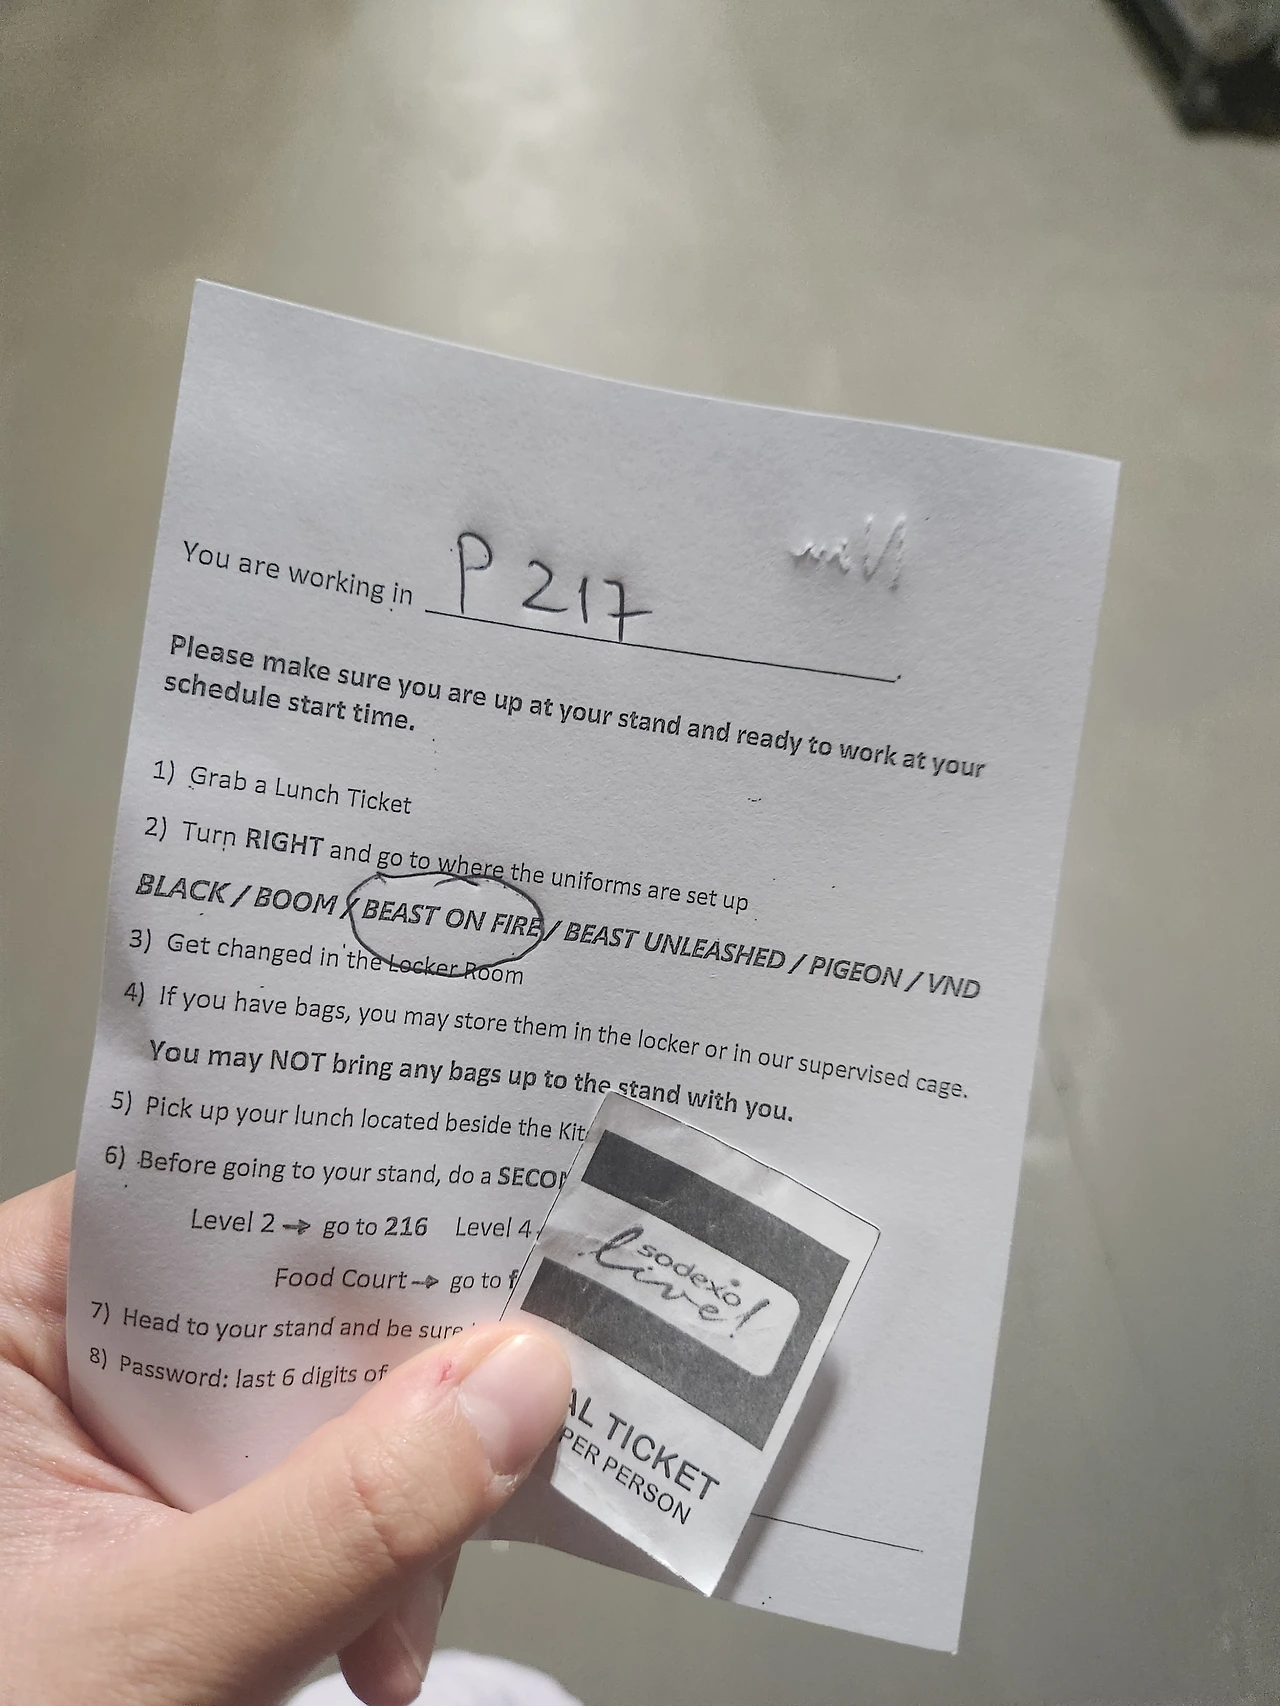 You are working in P 217
Please make sure you are up at your stand and ready to work at your
schedule start time.
1) Grab a Lunch Ticket
2) Turn RIGHT and go to where the uniforms are set up
BLACK / BOOM / BEAST ON FIRE / BEAST UNLEASHED / PIGEON / VND
3) Get changed in the Locker Room
4) If you have bags, you may store them in the locker or in our supervised cage.
You may NOT bring any bags up to the stand with you.
5) Pick up your lunch located beside the Kit
6) Before going to your stand, do a SECO
Level 2 → go to 216 Level 4
Food Court → go to f
7) Head to your stand and be sure
8) Password: last 6 digits of
sodexo
live!
AL TICKET
PER PERSON